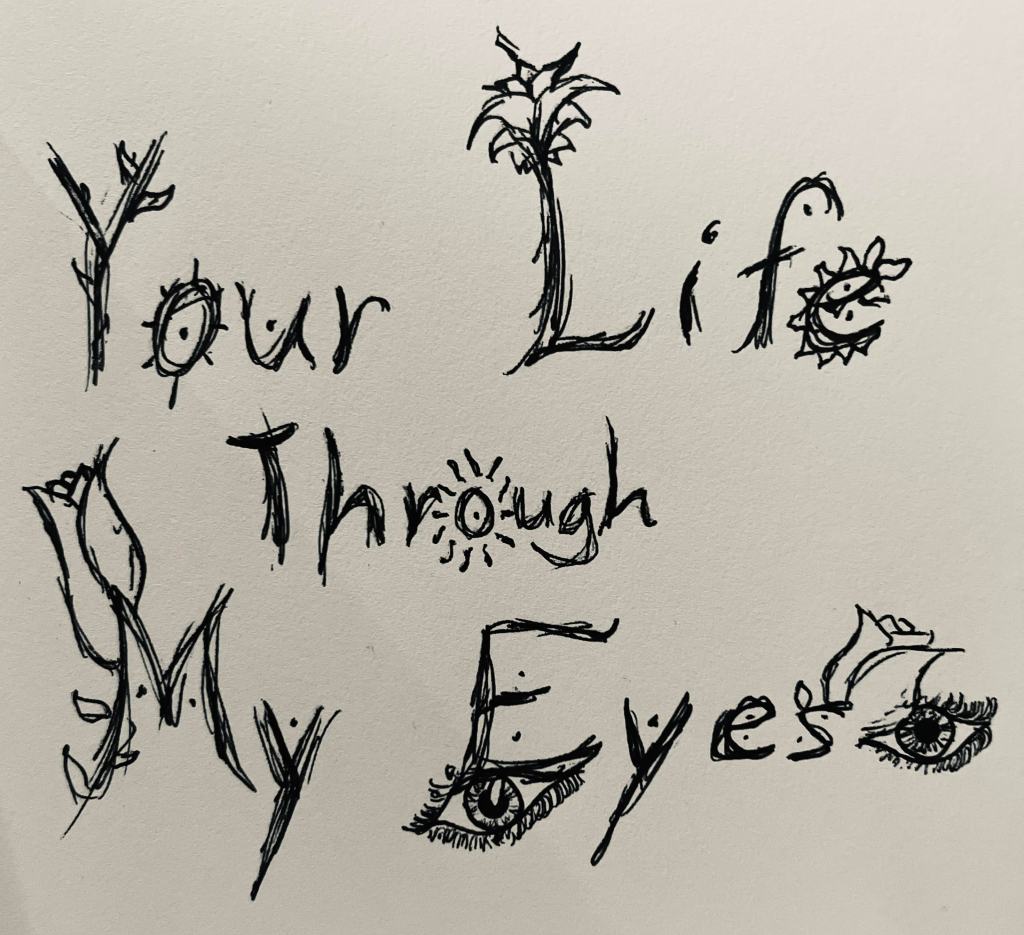 Your Life
Through
My Eyes